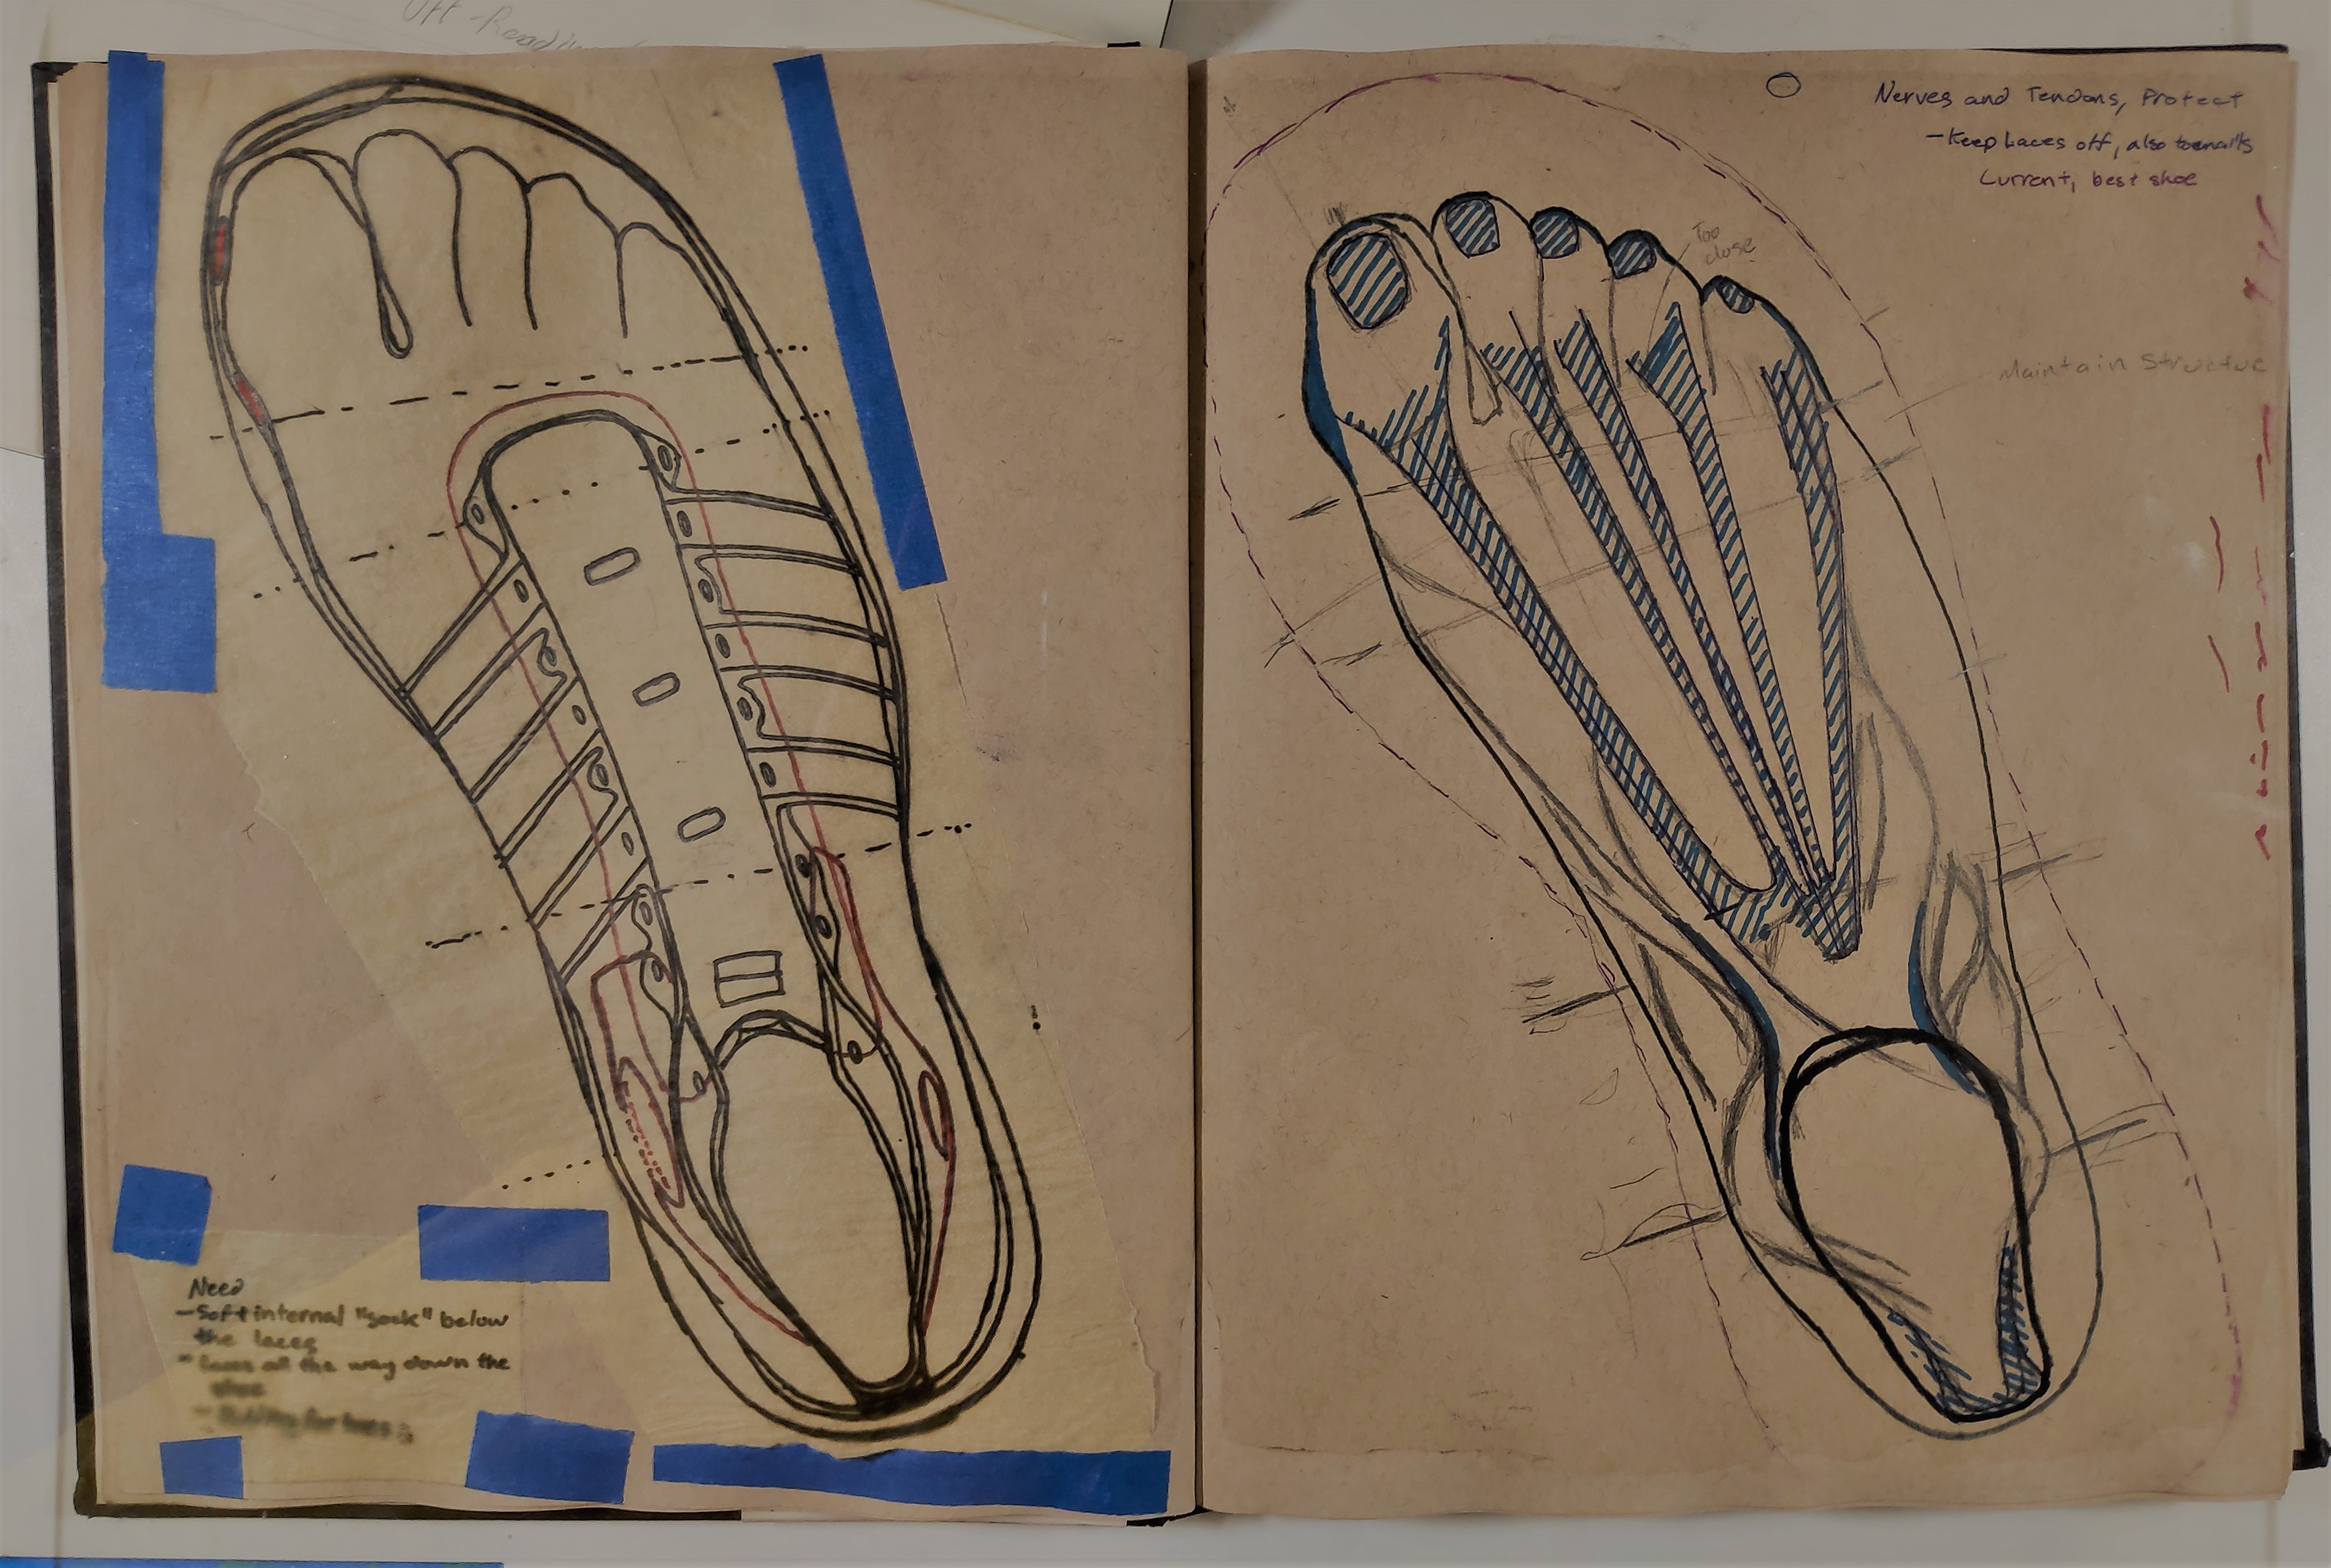 Off-Road
Need
- Soft internal "sock" below
the laces
- laces all the way down the
shoe
Nerves and Tendons, Protect
- Keep Laces off, also toenails
Current, best shoe
Too
close
Maintain Structur